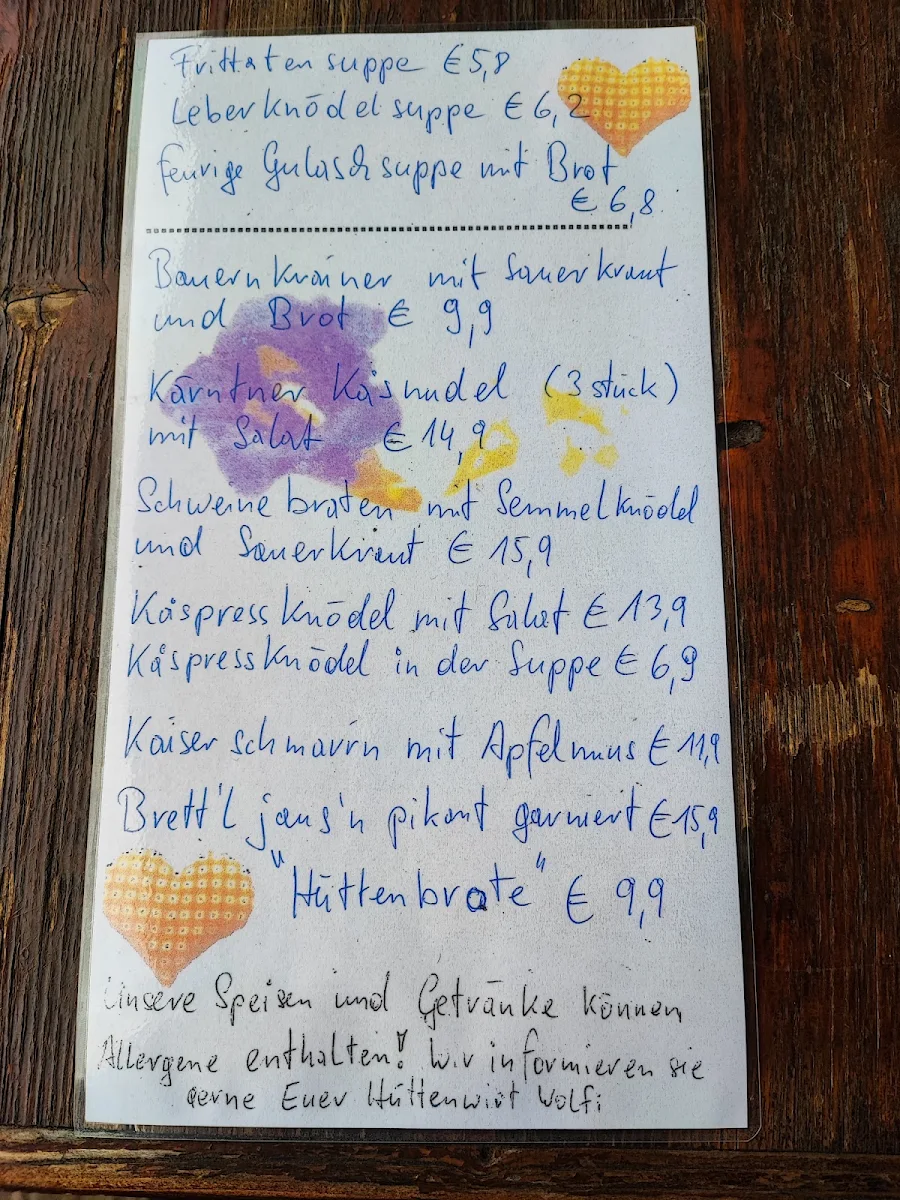 Frittatensuppe € 5,8
Leberknödelsuppe € 6,2
feurige Gulaschsuppe mit Brot
€ 6,8
Bauernkrainer mit Sauerkraut
und Brot € 9,9
Kärntner Käsnudel (3 stück)
mit Salat € 14,9
Schweinebraten mit Semmelknödel
und Sauerkraut € 15,9
Kåspressknödel mit Salat € 13,9
Kåspressknödel in der Suppe € 6,9
Kaiserschmarrn mit Apfelmus € 11,9
Brett'l jaus'n pikant garniert € 15,9
"Hüttenbrote" € 9,9
Unsere Speisen und Getränke können
Allergene enthalten! Wir informieren sie
gerne Euer Hüttenwirt Wolfi